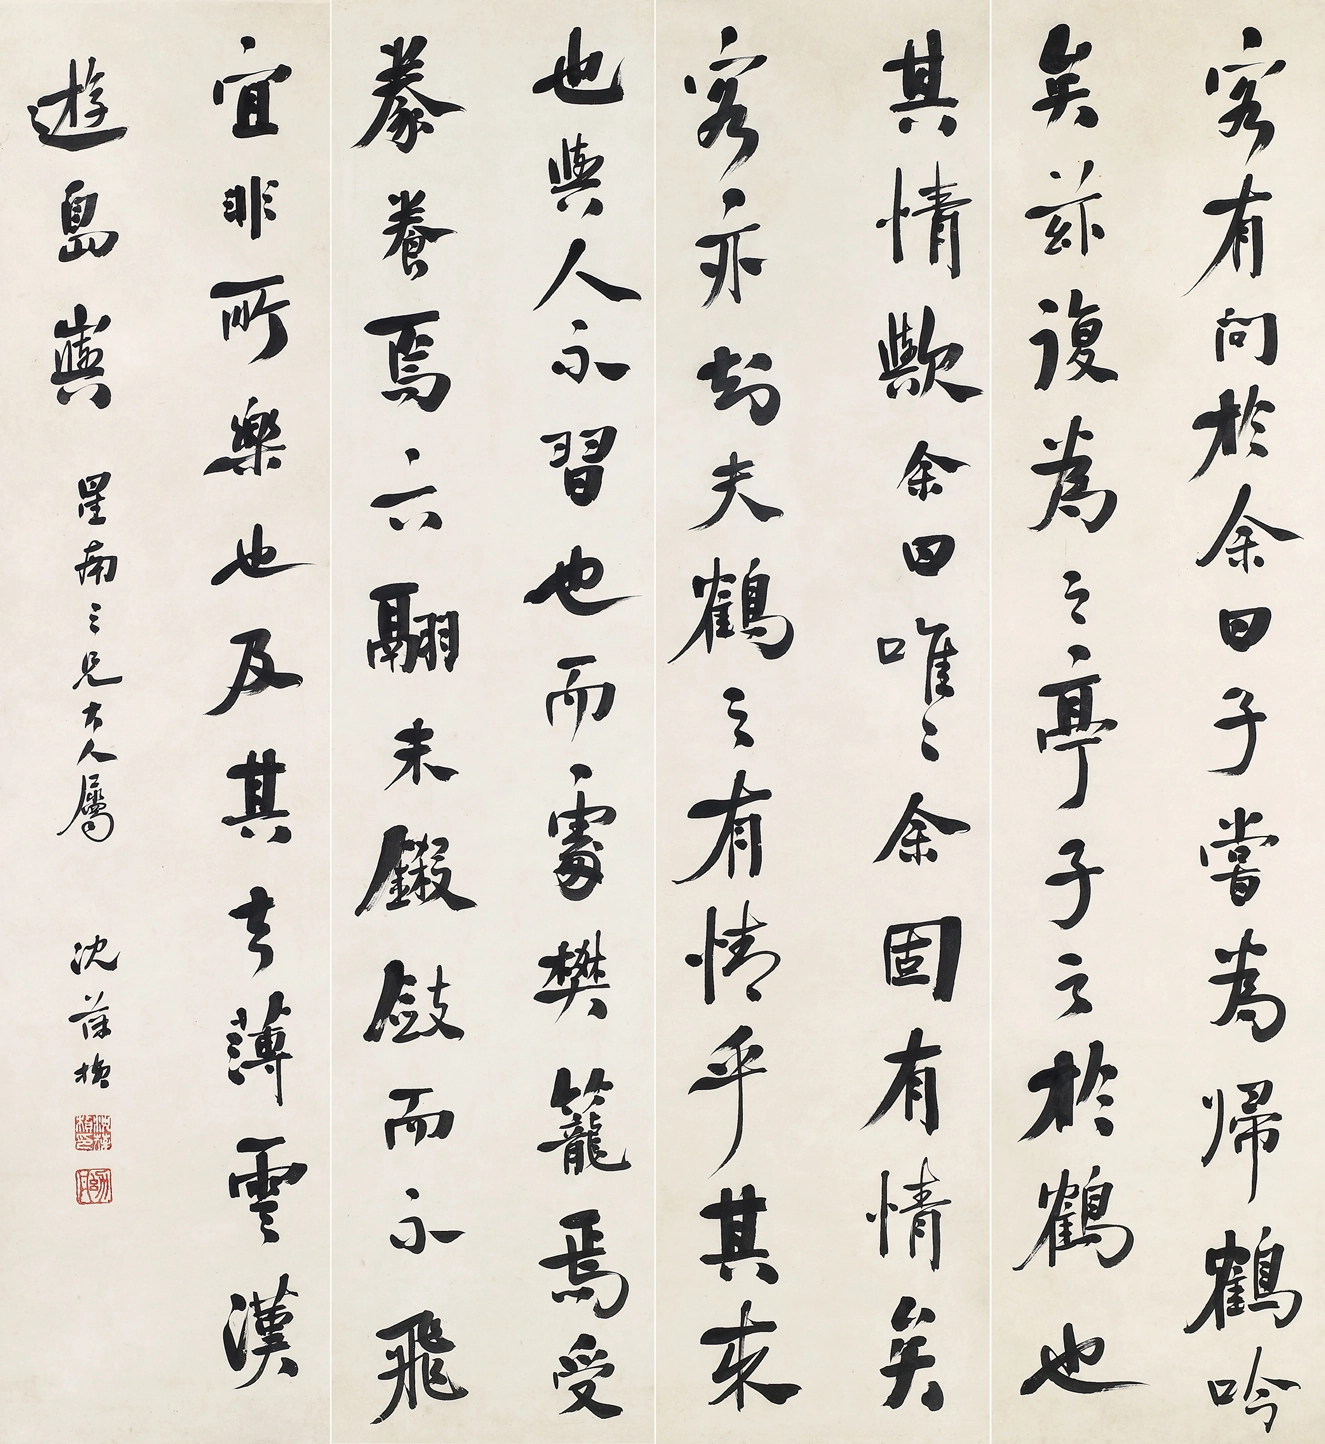 客有問於余曰子嘗為歸鶴吟
矣茲復為之亭子之於鶴也
其情歟余曰唯〻余固有情矣
客亦知夫鶴之有情乎其來
也與人不習也而處樊籠焉受
豢養焉六翮未鎩斂而不飛
宜非所樂也及其去薄雲漢
遊島嶼
星南三兄大人屬
沈葆楨
沈葆楨印
幼丹